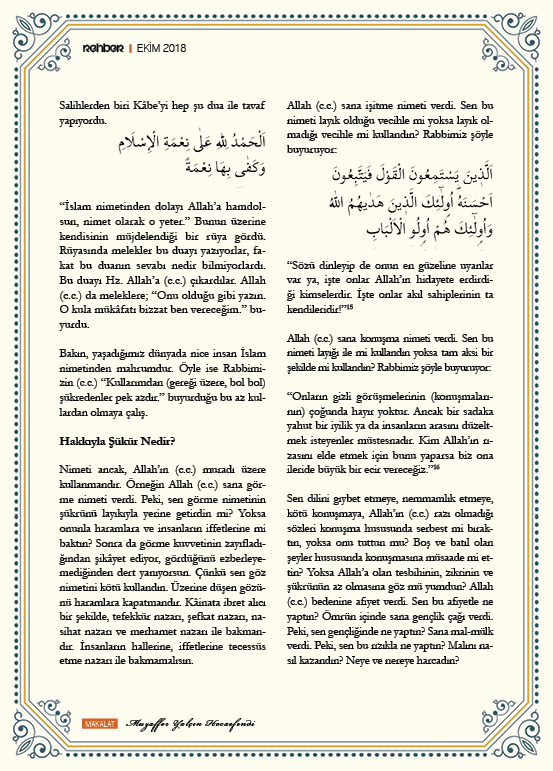 Rehber | EKİM 2018
Salihlerden biri Kâbe’yi hep şu dua ile tavaf
yapıyordu.
اَلْحَمْدُ لِلّٰهِ عَلٰى نِعْمَةِ الْاِسْلَامِ
وَكَفٰى بِهَا نِعْمَةً
“İslam nimetinden dolayı Allah’a hamdol-
sun, nimet olarak o yeter.” Bunun üzerine
kendisinin müjdelendiği bir rüya gördü.
Rüyasında melekler bu duayı yazıyorlar, fa-
kat bu duanın sevabı nedir bilmiyorlardı.
Bu duayı Hz. Allah’a (c.c.) çıkardılar. Allah
(c.c.) da meleklere; “Onu olduğu gibi yazın.
O kula mükâfatı bizzat ben vereceğim.” bu-
yurdu.
Bakın, yaşadığımız dünyada nice insan İslam
nimetinden mahrumdur. Öyle ise Rabbimi-
zin (c.c.) “Kullarımdan (gereği üzere, bol bol)
şükredenler pek azdır.” buyurduğu bu az kul-
lardan olmaya çalış.
Hakkıyla Şükür Nedir?
Nimeti ancak, Allah’ın (c.c.) muradı üzere
kullanmandır. Örneğin Allah (c.c.) sana gör-
me nimeti verdi. Peki, sen görme nimetinin
şükrünü layıkıyla yerine getirdin mi? Yoksa
onunla haramlara ve insanların iffetlerine mi
baktın? Sonra da görme kuvvetinin zayıfladı-
ğından şikâyet ediyor, gördüğünü ezberleye-
mediğinden dert yanıyorsun. Çünkü sen göz
nimetini kötü kullandın. Üzerine düşen gözü-
nü haramlara kapatmandır. Kâinata ibret alıcı
bir şekilde, tefekkür nazarı, şefkat nazarı, na-
sihat nazarı ve merhamet nazarı ile bakman-
dır. İnsanların hallerine, iffetlerine tecessüs
etme nazarı ile bakmamalısın.
Allah (c.c.) sana işitme nimeti verdi. Sen bu
nimeti layık olduğu vecihle mi yoksa layık ol-
madığı vecihle mi kullandın? Rabbimiz şöyle
buyuruyor:
اَلَّذٖينَ يَسْتَمِعُونَ الْقَوْلَ فَيَتَّبِعُونَ
اَحْسَنَهُ اُولٰٓئِكَ الَّذٖينَ هَدٰيهُمُ اللّٰهُ
وَاُولٰٓئِكَ هُمْ اُولُو الْاَلْبَابِ
“Sözü dinleyip de onun en güzeline uyanlar
var ya, işte onlar Allah’ın hidayete erdirdi-
ği kimselerdir. İşte onlar akıl sahiplerinin ta
kendileridir!”15
Allah (c.c.) sana konuşma nimeti verdi. Sen bu
nimeti layığı ile mi kullandın yoksa tam aksi bir
şekilde mi kullandın? Rabbimiz şöyle buyuruyor:
“Onların gizli görüşmelerinin (konuşmaları-
nın) çoğunda hayır yoktur. Ancak bir sadaka
yahut bir iyilik ya da insanların arasını düzelt-
mek isteyenler müstesnadır. Kim Allah’ın rı-
zasını elde etmek için bunu yaparsa biz ona
ileride büyük bir ecir vereceğiz.”16
Sen dilini gıybet etmeye, nemmamlık etmeye,
kötü konuşmaya, Allah’ın (c.c.) razı olmadığı
sözleri konuşma hususunda serbest mi bırak-
tın, yoksa onu tuttun mu? Boş ve batıl olan
şeyler hususunda konuşmasına müsaade mi et-
tin? Yoksa Allah’a olan tesbihinin, zikrinin ve
şükrünün az olmasına göz mü yumdun? Allah
(c.c.) bedenine afiyet verdi. Sen bu afiyetle ne
yaptın? Ömrün içinde sana gençlik çağı verdi.
Peki, sen gençliğinde ne yaptın? Sana mal-mülk
verdi. Peki, sen bu rızıkla ne yaptın? Malını na-
sıl kazandın? Neye ve nereye harcadın?
MAKALAT Muzaffer Yalçın Hocaefendi